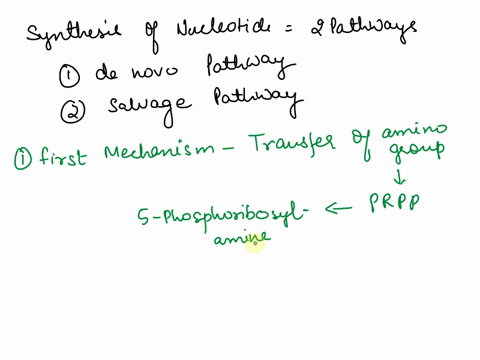 Synthesis of Nucleotide = 2 Pathways
① de novo Pathway
② Salvage Pathway
① first Mechanism - Transfer of amino group
↓
5-Phosphoribosyl-amine ← PRPP